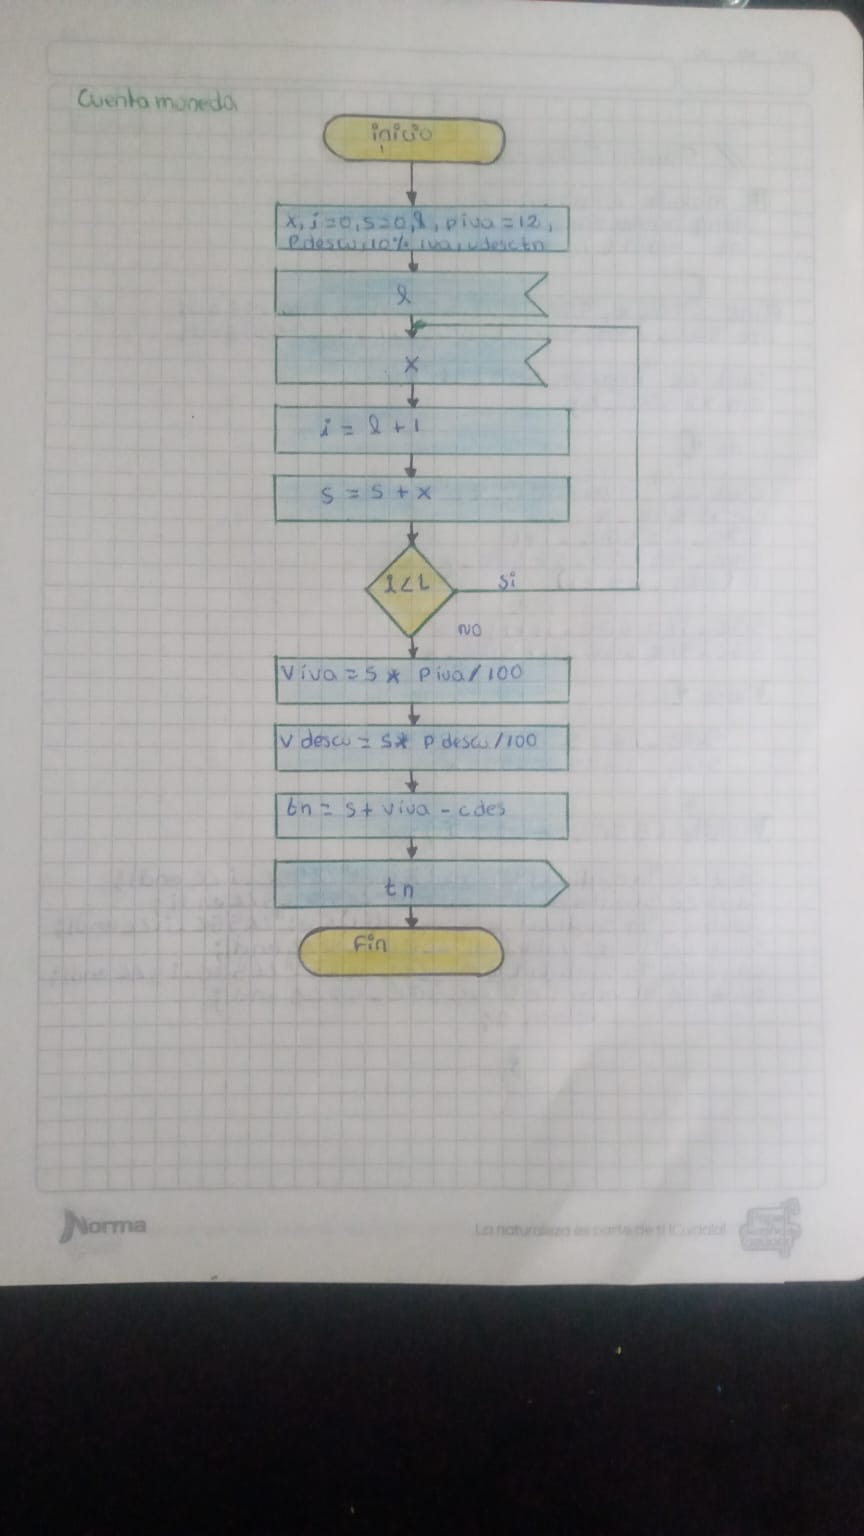 Cuenta moneda
inicio
x, i=0, s=0, l, piva=12,
Pdescu, 10% iva, vdesctn
l
x
i = l + 1
s = s + x
i<L
Si
NO
Viva = s * Piva/100
V descu = s* P descu/100
tn = s + viva - cdes
tn
Fin
Norma
La naturaleza es parte de ti ¡Cuídala!